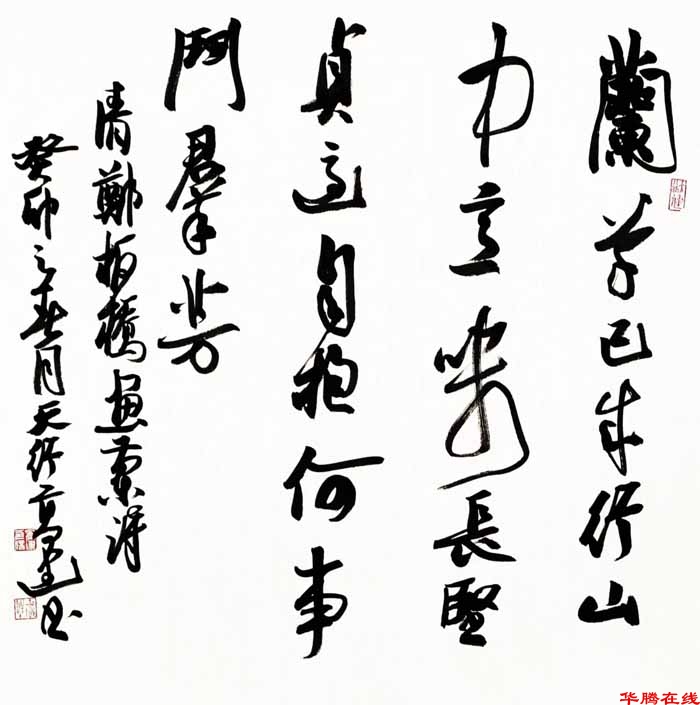 蘭草已成行山
中意味長堅
貞還自抱何事
鬥羣芳
清鄭板橋畫蘭詩
癸卯之春月天行书
华腾在线